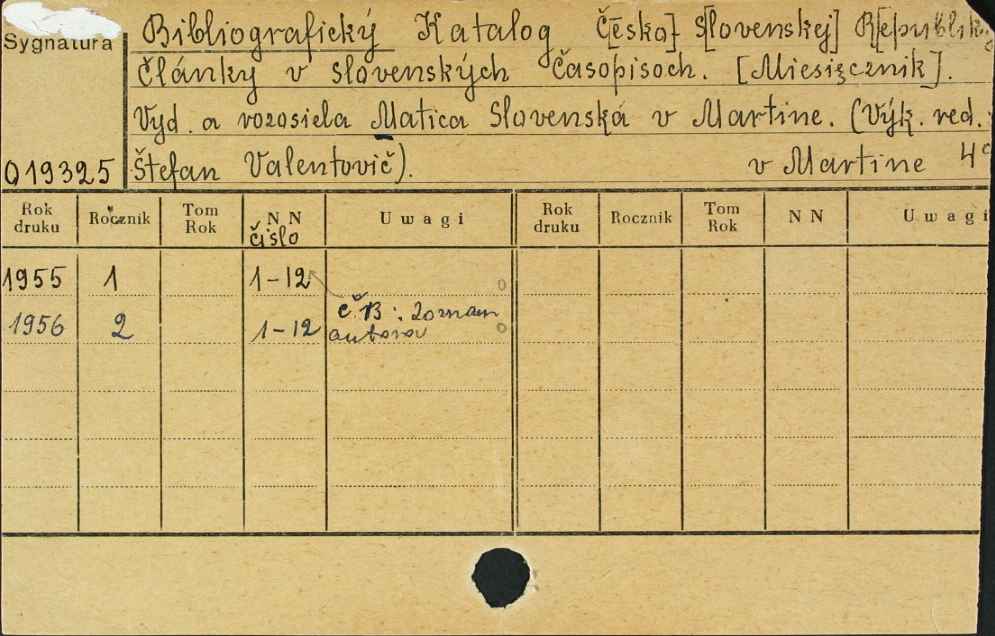 Sygnatura
Bibliografický Katalog Česko] S[lovenskej] R[epublik
Články v slovenských Časopisoch. [Miesięcznik].
Vyd. a rozosiela Matica Slovenská v Martine. (Výk. red.
Q19325 Štefan Valentovič). v Martine 4°
Rok druku Rocznik Tom Rok NN Uwagi Rok druku Rocznik Tom Rok NN Uwagi
číslo
1955 1 1-12
č. B: Zoznam
1956 2 1-12 autorov